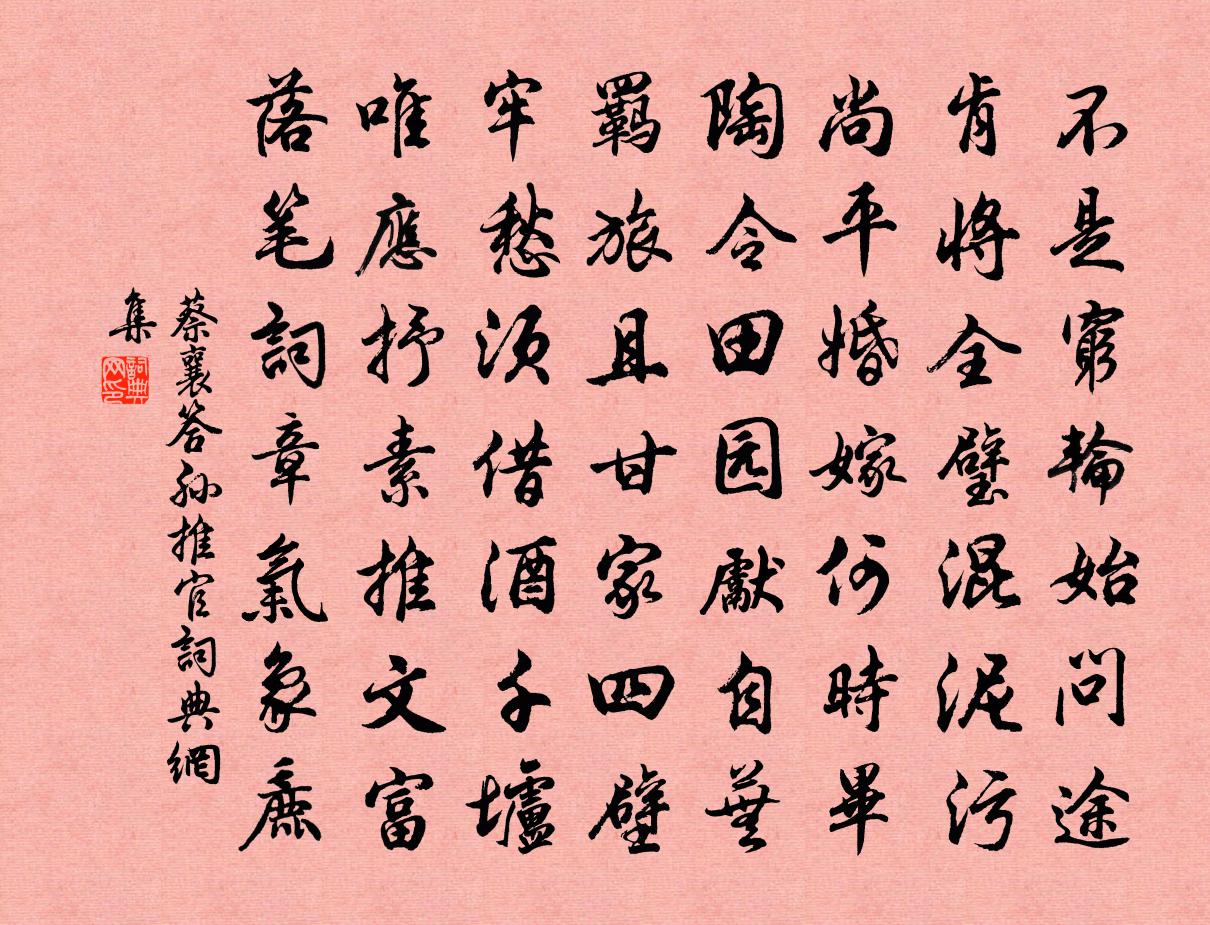 不是窮輪始問途
肯將全璧混泥污
尚平婚嫁何時畢
陶令田园獻自蕪
羈旅且甘家四壁
牢愁須借酒千壚
唯應抒素推文富
落笔詞章氣象麁
蔡襄答孙推官詞典網
集
詞典
网印